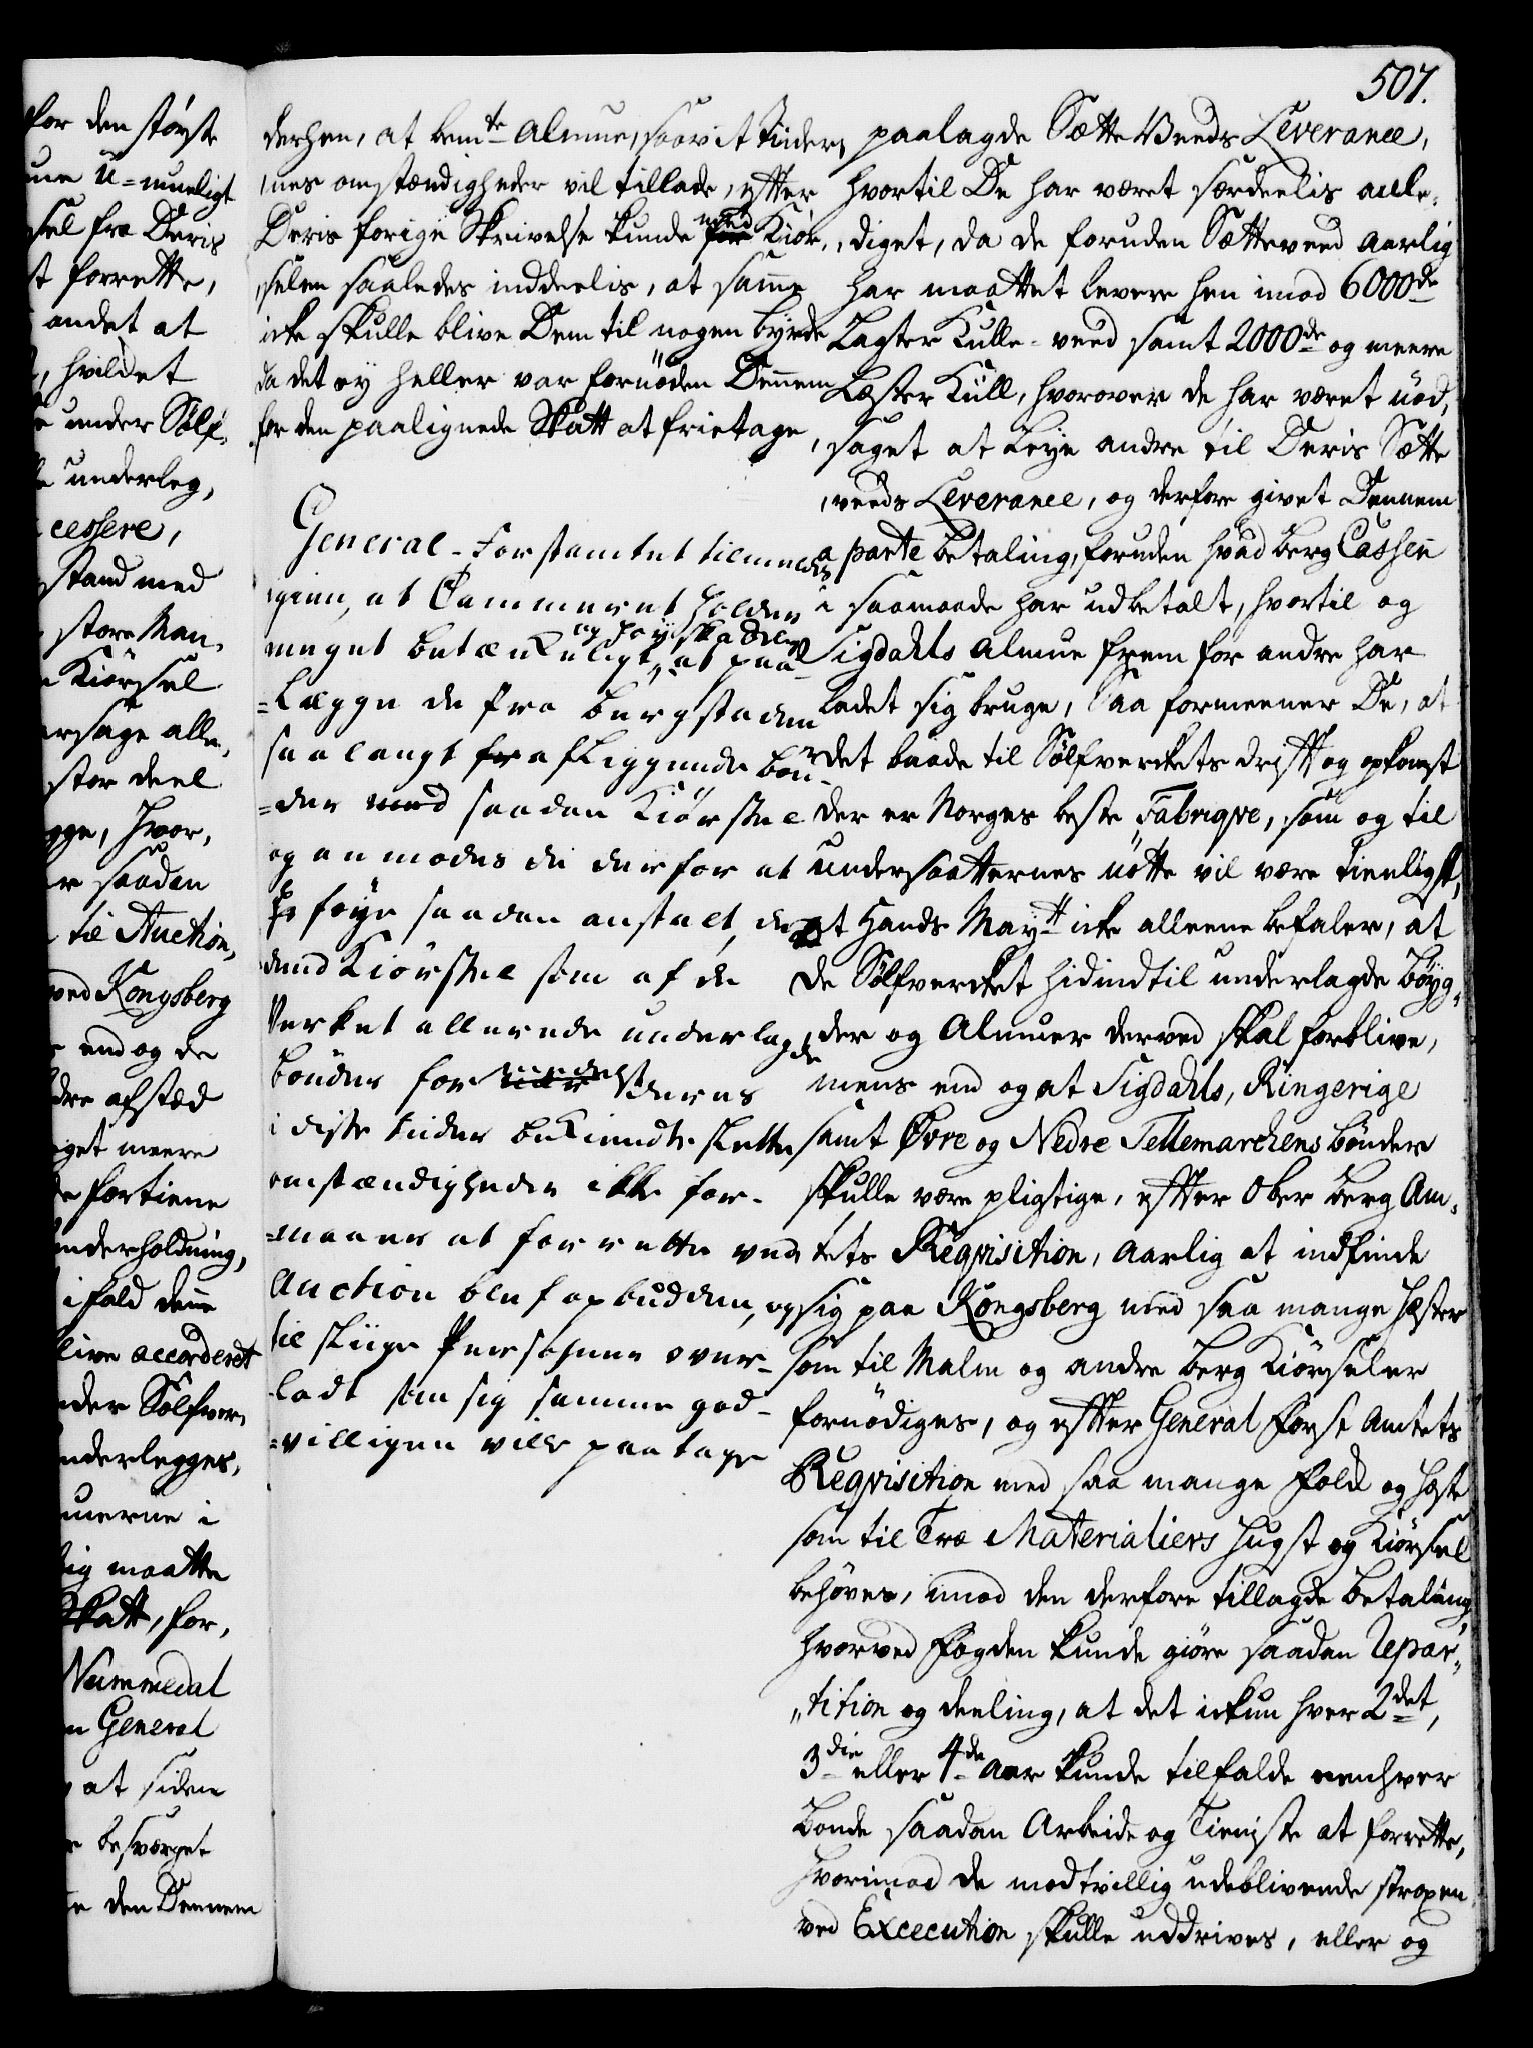 for den største
ume u=mueligt
sel fra Deris
st forrette,
andet at
, hvildet
under Sølf,
underleg,
cessere,
stand med
store Man,
Kiørsel
arsage alle,
stor deel
egge, hvor,
er saadan
til Auction,
ved Kongsberg
end og de
dre afsted
get meere
fortiene
nderholdning,
ifald denne
live accorderet
nder Sølfver,
nderlegges,
uerne i
tig maatte
Skatt, for,
Nummedal
n General
at siden
besværget
den Dennem
507.
derhen, at bemte Almue, saavit Tider,
nes omstændigheder vil tillade, efter
Deris forige Skrivelse kunde med for Kiør,
selen saaledes inddeelis, at samme
icke skulle blive Dem til nogen byrde
da det ey heller var fornöden Dennem
for den paalignede Skatt at frietage,
General-Forstamtet tilmeldes
igien, at Cammeret holder
meget betænkeligt og høyskadel. at paa-
=lægge de fra bergstaden
saa langt fra afliggende bøn-
=der med saadan Kiørsel
og anmodes di derfor at
föye saadan anstalt,
dend Kiørsel som af de
Verket allerede underlagde
bönder for deres
i disse tider bekiendte slette
omstændigheder ikke for-
=maaes at forrette ved
Auction blef opbudden, og
til sliige Persohner over-
=ladt som sig samme god-
=villigen ville paatage
paalagde Sætte Veeds Leverance,
hvortil De har været særdeelis anle,
diget, da de foruden Sætteveed Aarlig
har maattet levere hen imod 6000de
Lagter Kulle-veed samt 2000de og meere
Læster Kull, hvorover de har været nöd,
saget at leye andre til Deris Sætte
veeds Leverance, og derfore givet Dennem
a parte betaling, foruden hvad berg Cassen
i saamaade har udbetalt, hvortil og
Sigdahls Almue frem for andre har
ladet sig bruge, Saa formeener De, at
det baade til Sølfverckets drift og opkomst
der er Norges beste Fabriqve, som og til
undersaatternes nötte vil være tienligst,
at Hands Maytt icke alleene befaler, at
de Sølfvercket hidindtil underlagde bøyg,
der og Almuer derved skal forblive,
mens end og at Sigdahls, Ringerige
samt Øvre og Nedre Tellemarchens bönder
skulle være pligtige, efter Ober Berg Am,
tets Reqvisition, Aarlig at indfinde
sig paa Kongsberg med saa mange Hæster
som til Malm og andre berg Kiørseler
fornødiges, og efter General Forst Amtets
Reqvisition med saa mange Folk og Hæste
som til Træ Materialiers Hugst og Kiørsel
behøves, imod den derfore tillagde betaling,
hvorved Fogden kunde giøre saadan Repar,,
,,tition og deeling, at det ickun hver 2det,
3die eller 4de Aar kunde tilfalde eenhver
bonde saadan Arbeide og Tieniste at forrette,
hvorimod de modtvillig udeblivende straxen
ved Excecution skulle uddrives, eller og